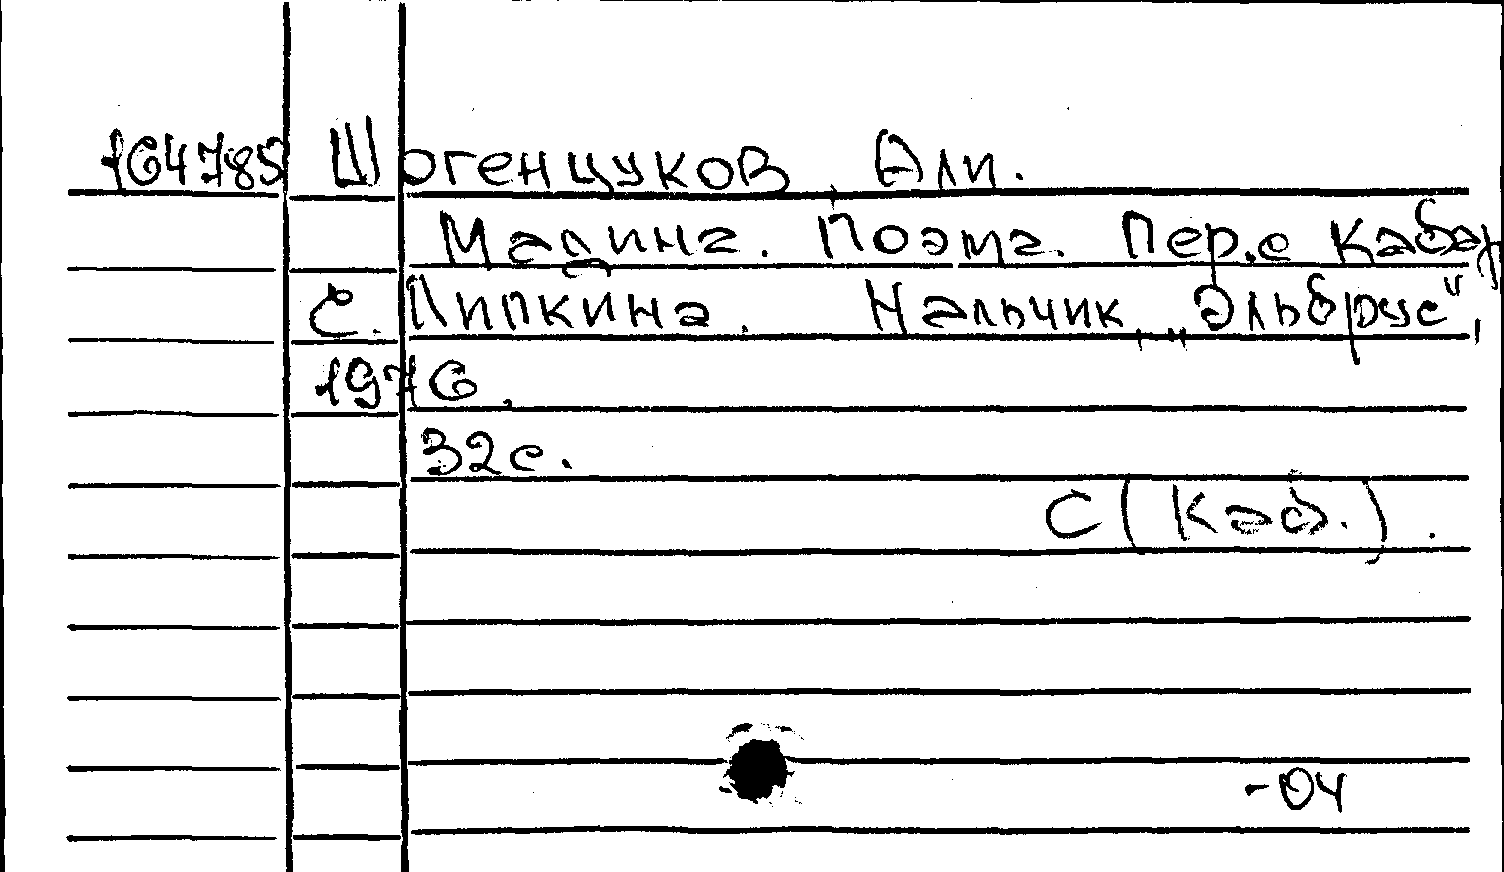 164785 Шогенцуков, Али.
Мадина. Поэма. Пер. с кабард.
С. Липкина. Нальчик, „Эльбрус",
1976.
32с.
С(Каб.).
-04